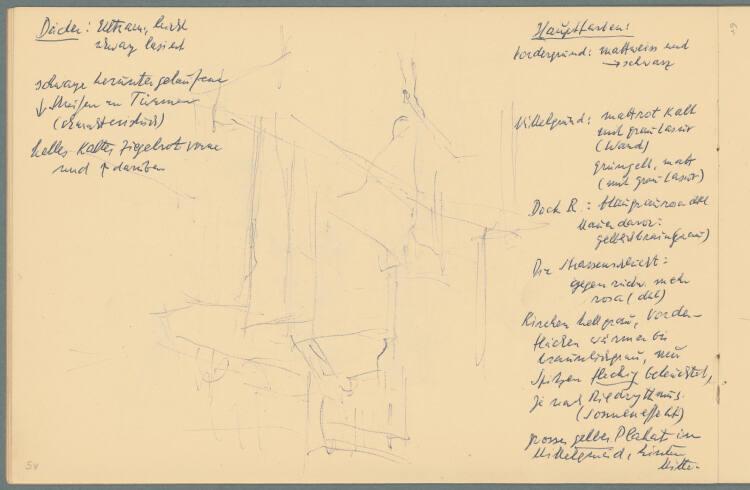 Dächer: Ultram, leicht
schwarz lasiert
schwarze heruntergelaufene
↓ Streifen an Türmen
(charakteristisch)
helles kaltes Ziegelrot vorne
und ↑ darüber
Hauptfarben:
Vordergrund: mattweiss und
→ schwarz
Mittelgrund: mattrot kalt
mit grau lasur
(Wand)
grüngelb, matt
(mit grau lasur)
Dach R.: blaugraurosa dkl
Mauer davor:
gelblichbraun(grau)
Die Strassenschlucht:
gegen mehr
rosa (dkl)
Kirchen hellgrau, Vorder-
flächen wärmer bis
nur
Spitzen fleckig beleuchtet,
je nach
(Sonneneffekt)
grosses gelbes Plakat im
Mittelgrund, hinten
Mitte.
54